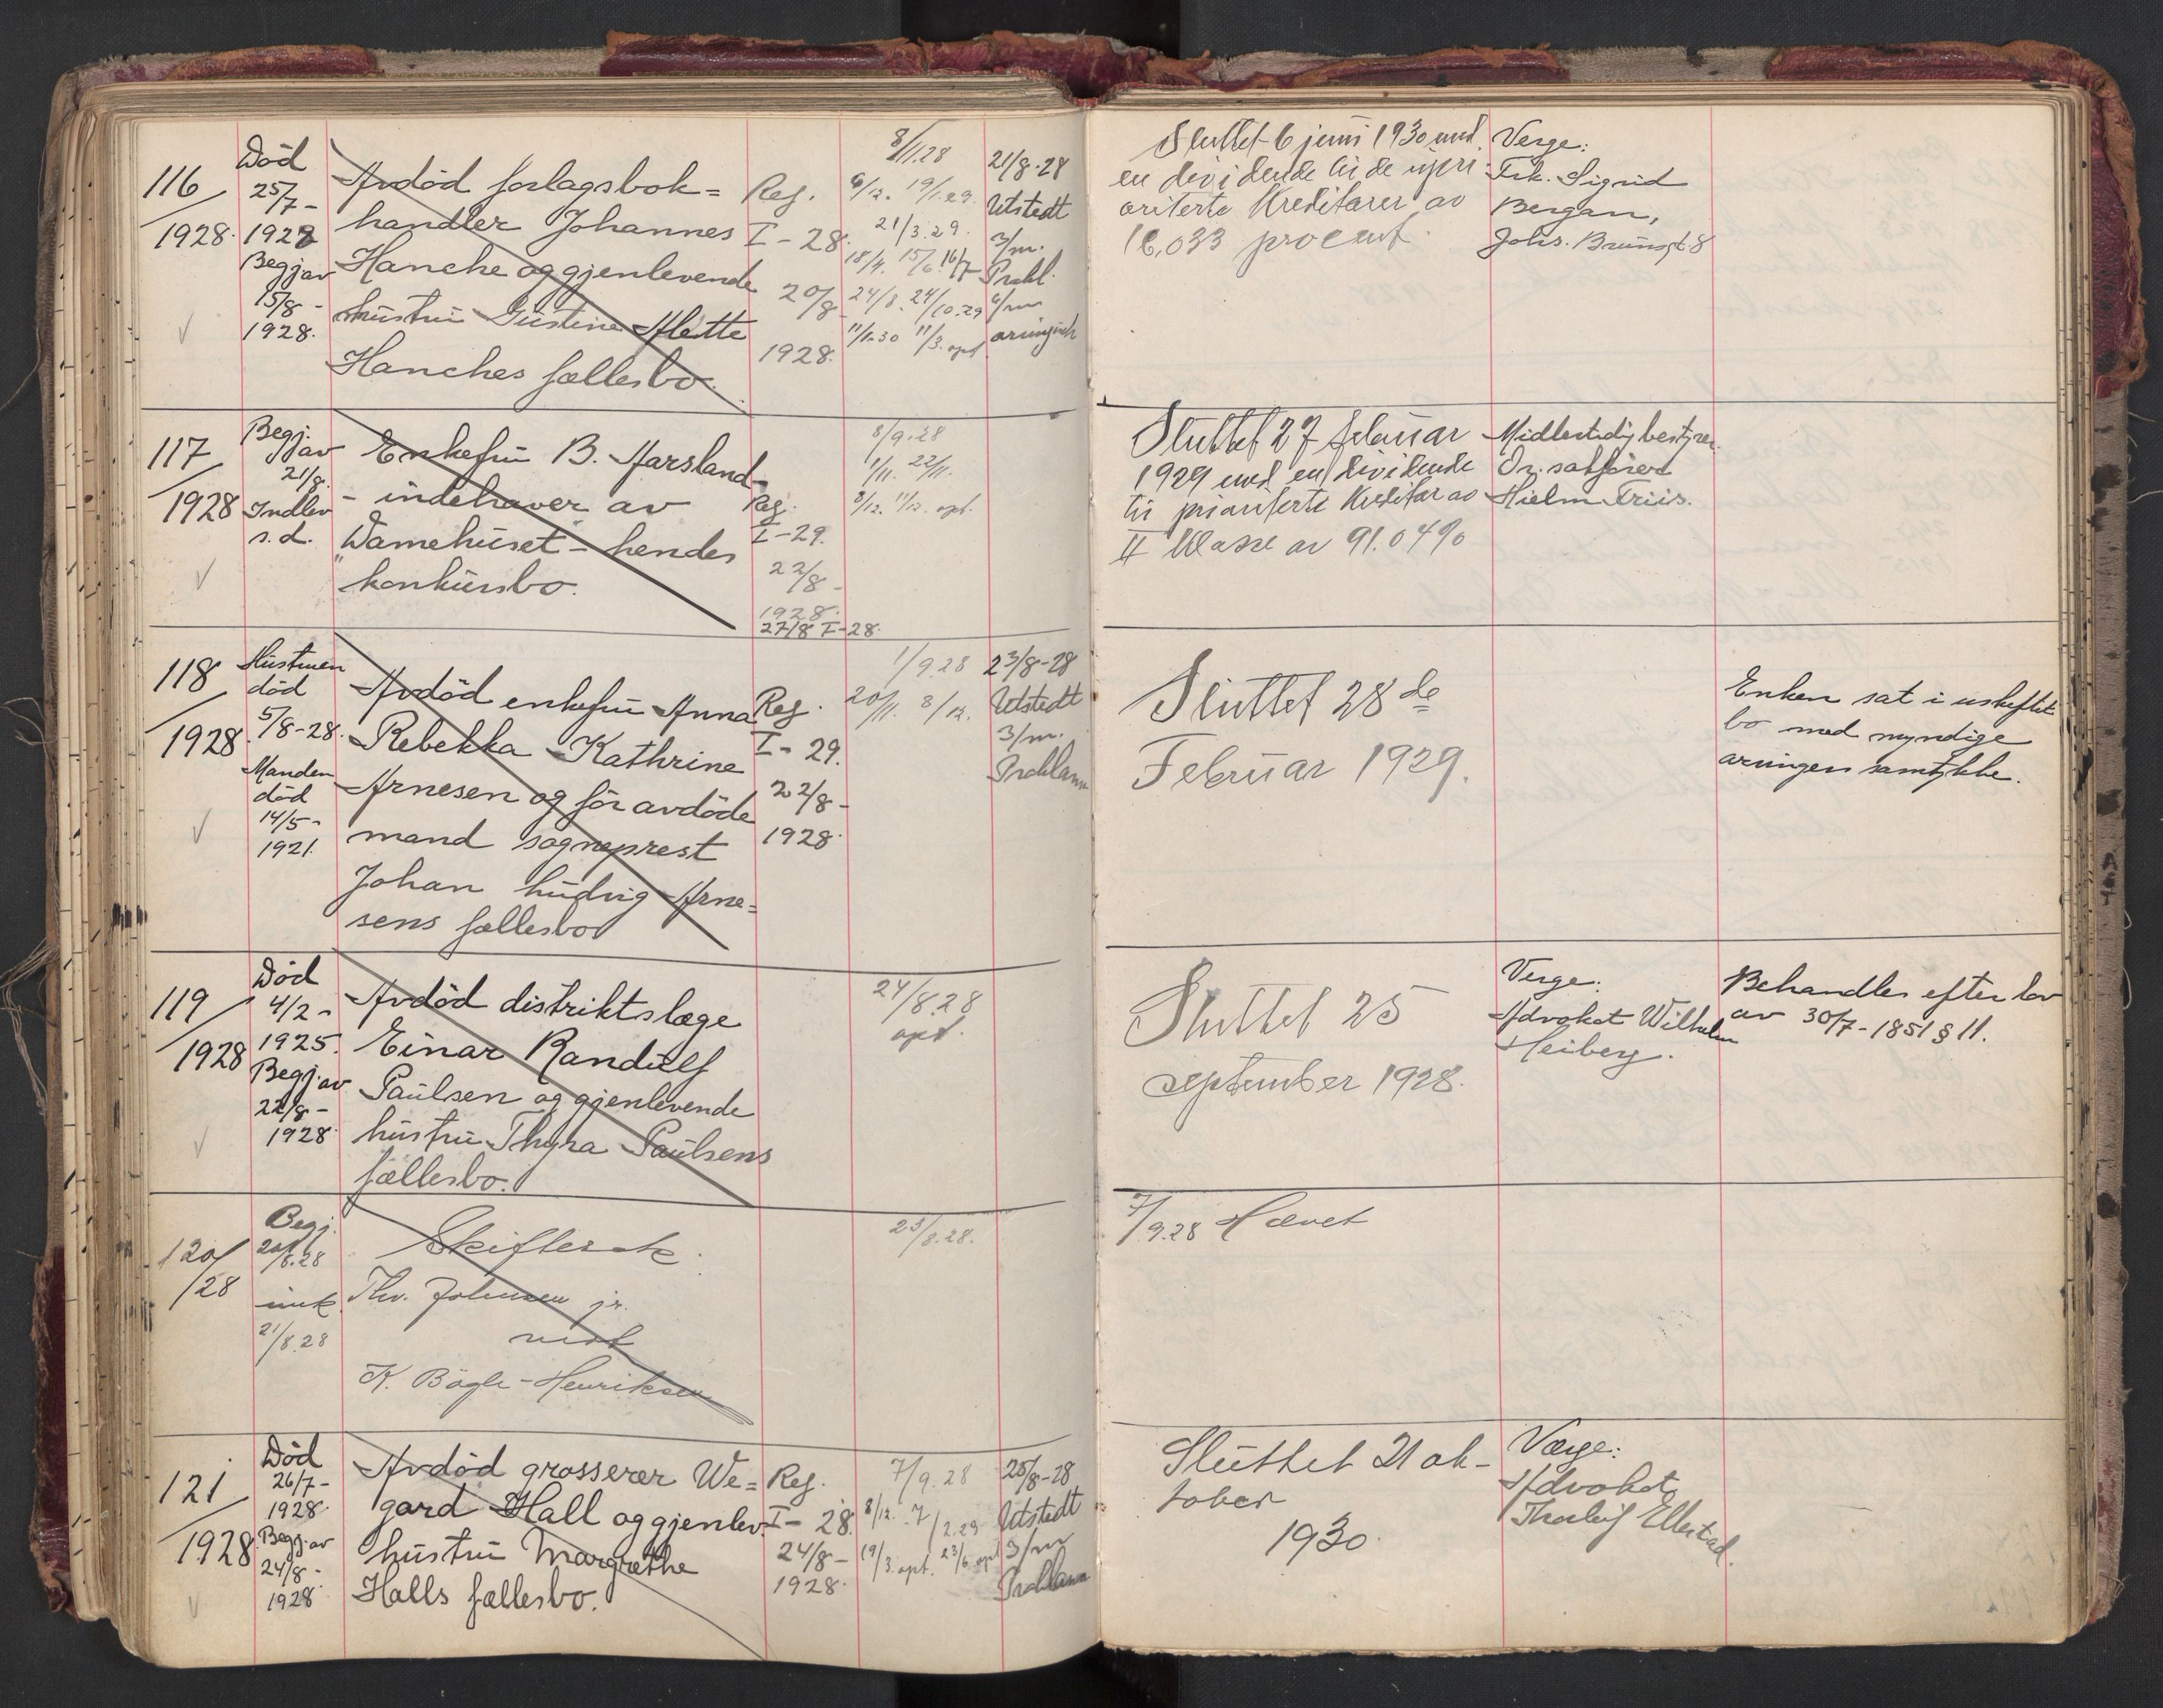 116
1928.
Död
25/7 -
1928
Begj av
15/8 -
1928.
Avdöd forlagsbok=
handler Johannes
Hanche og gjenlevende
hustru Gustine Alette
Hanches fællesbo.
Reg.
I - 28.
20/8
1928.
8/11.28
6/12. 19/1.29.
21/3.29.
18/4. 15/6. 16/7
24/8. 24/10.29
11/1.30 11/3. opt
21/8-28
Utstedt
3/m.
Prokl.
Sluttet 6 juni 1930 med
en dividende til de upri-
oriterte Kreditorer av
16,033 procent.
Verge:
Frk. Sigrid
Bergan,
Johs. Brunsgt 8
117
1928
Begj.
av
21/8.
Indlev
s.d.
Enkefru B. Aarsland
- indehaver av
"Damehuset - hendes
konkursbo.
Reg.
I-29.
22/8 -
1928.
27/8 I-28.
8/9.28
1/11. 22/11.
8/12. 11/12. opt.
Sluttet 27 februar
1929 med en dividende
til prioriterte Kreditor av
II Klasse av 91.04%
Midlertidig bestyrer
Or. sakförer
Hielm Friis.
118
1928
Hustruen
död
5/8-28.
Manden
död
14/5 -
1921.
Avdöd enkefru Anna
Rebekka Kathrine
Arnesen og för avdöde
mand sogneprest
Johan Ludvig Arne=
sens fællesbo
Reg.
I - 29.
22/8 -
1928.
1/9.28
20/11. 8/12.
23/8-28
Utstedt
3/m.
Proklama
Sluttet 28 de
Februar 1929.
Enken sat i uskiftet
bo med myndige
arvingers samtykke.
119
1928
Död
4/2 -
1925.
Begj. av
22/8 -
1928.
Avdöd distriktslæge
Einar Randulf
Paulsen og gjenlevende
hustru Thyra Paulsens
fællesbo.
24/8.28
opt.
Sluttet 25
september 1928.
Verge:
Advokat Wilhelm
Heiberg.
Behandles efter lov
av 30/7-1851 § 11.
120/
/28
Begj.
20/8.28
innk
21/8.28
Skiftesak:
Thv. Johnsen jr.
mot
K. Bögh-Henriksen
25/8.28.
7/9.28 Hævet
121
1928
Död
26/7 -
1928.
Begj. av
24/8 -
1928.
Avdöd grosserer We=
gard Hall og gjenlev.
hustru Margrethe
Halls fællesbo.
Reg.
I - 28.
24/8 -
1928.
7/9.28
8/12. 7/2.29
19/3. opt. 23/6. opt
25/8-28
Utstedt
3/m
Proklama
Sluttet 21 ok-
tober
1930.
Verge:
Advokat
Thorleif Ellestad.